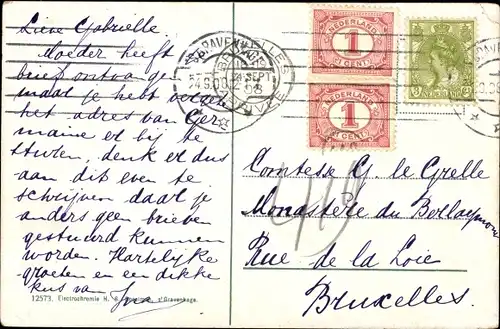 Lieve Gabrielle.
Moeder heeft
brief ontvangen
maar je hebt vergeten
het adres van Ger-
maine er bij te
sturen, denk er dus
aan dit even te
schrijven daar je
anders geen brieven
gestuurd kunnen
worden. Hartelijke
groeten en een dikke
kus van
12573. Electrochromie H. 's Gravenhage.
NEDERLAND
1
CENT
NEDERLAND
1
CENT
NEDERLAND
BRUXELLES
SEPT
Comtesse G. le Grelle
Monastère du Berlaymont
Rue de la Loie
Bruxelles.